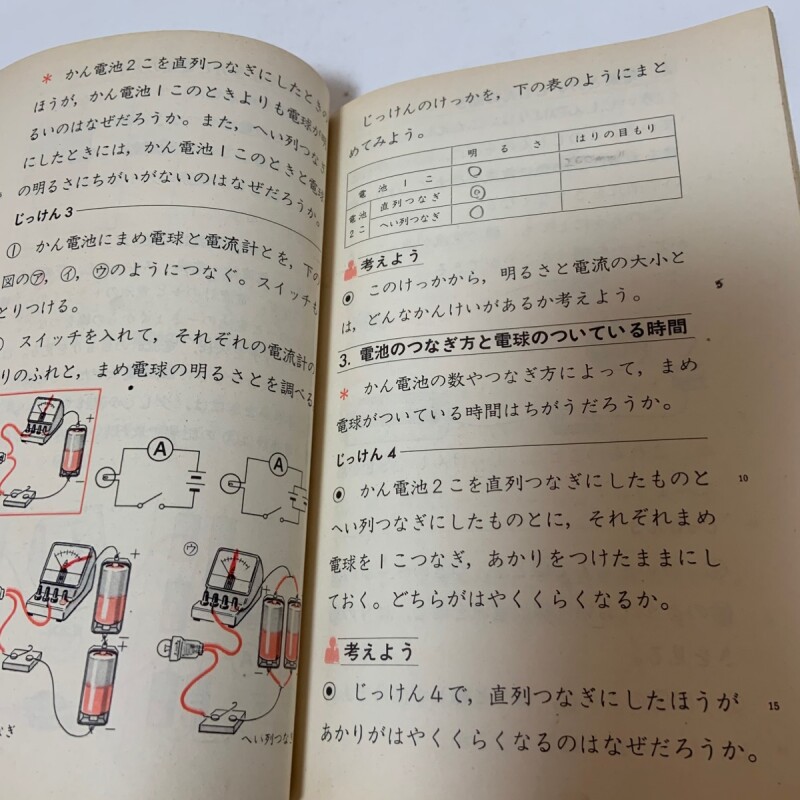 * かん電池2こを直列つなぎにしたときの
ほうが，かん電池1このときよりも電球が明
るいのはなぜだろうか。また，へい列つなぎ
にしたときには，かん電池1このときと電球
の明るさにちがいがないのはなぜだろうか。
じっけん3
① かん電池にまめ電球と電流計とを，下の
図の㋐，㋑，㋒のようにつなぐ。スイッチも
とりつける。
スイッチを入れて，それぞれの電流計の
りのふれと，まめ電球の明るさとを調べる
+
−
A
A
㋒
+
−
+
−
+
−
へい列つなぎ
じっけんのけっかを，下の表のようにまと
めてみよう。
明るさ はりの目もり
電池1こ ○
電池2こ 直列つなぎ ◎
へい列つなぎ ○
考えよう
◉ このけっかから，明るさと電流の大小と
は，どんなかんけいがあるか考えよう。
5
3. 電池のつなぎ方と電球のついている時間
* かん電池の数やつなぎ方によって，まめ
電球がついている時間はちがうだろうか。
じっけん4
◉ かん電池2こを直列つなぎにしたものと
10
へい列つなぎにしたものとに，それぞれまめ
電球を1こつなぎ，あかりをつけたままにし
ておく。どちらがはやくくらくなるか。
考えよう
◉ じっけん4で，直列つなぎにしたほうが
15
あかりがはやくくらくなるのはなぜだろうか。